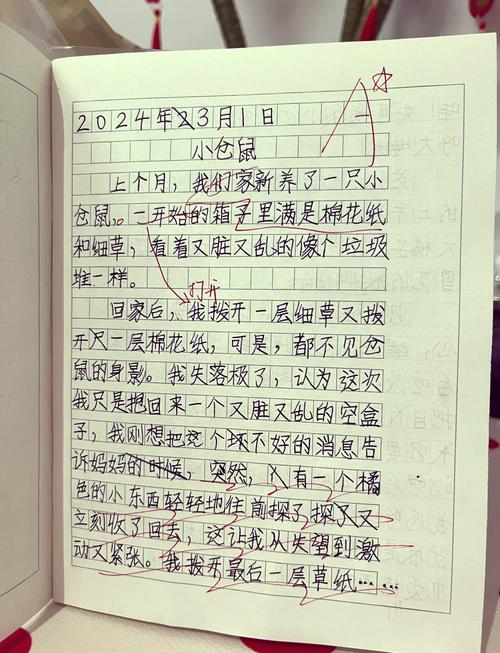 A
2024年3月1日
小仓鼠
上个月，我们家新养了一只小
仓鼠。一开始的箱子里满是棉花纸
和细草，看着又脏又乱的像个垃圾
堆一样。
打开
回家后，我拨开一层细草又拨
开一层棉花纸，可是，都不见仓
鼠的身影。我失落极了，认为这次
我只是抱回来一个又脏又乱的空盒
子，我刚想把这个坏不好的消息告
诉妈妈的时候，突然，有一个橘
色的小东西轻轻地往前探了探又又
立刻收了回去，这让我从失望到激
动又紧张。我拨开最后一层草纸……